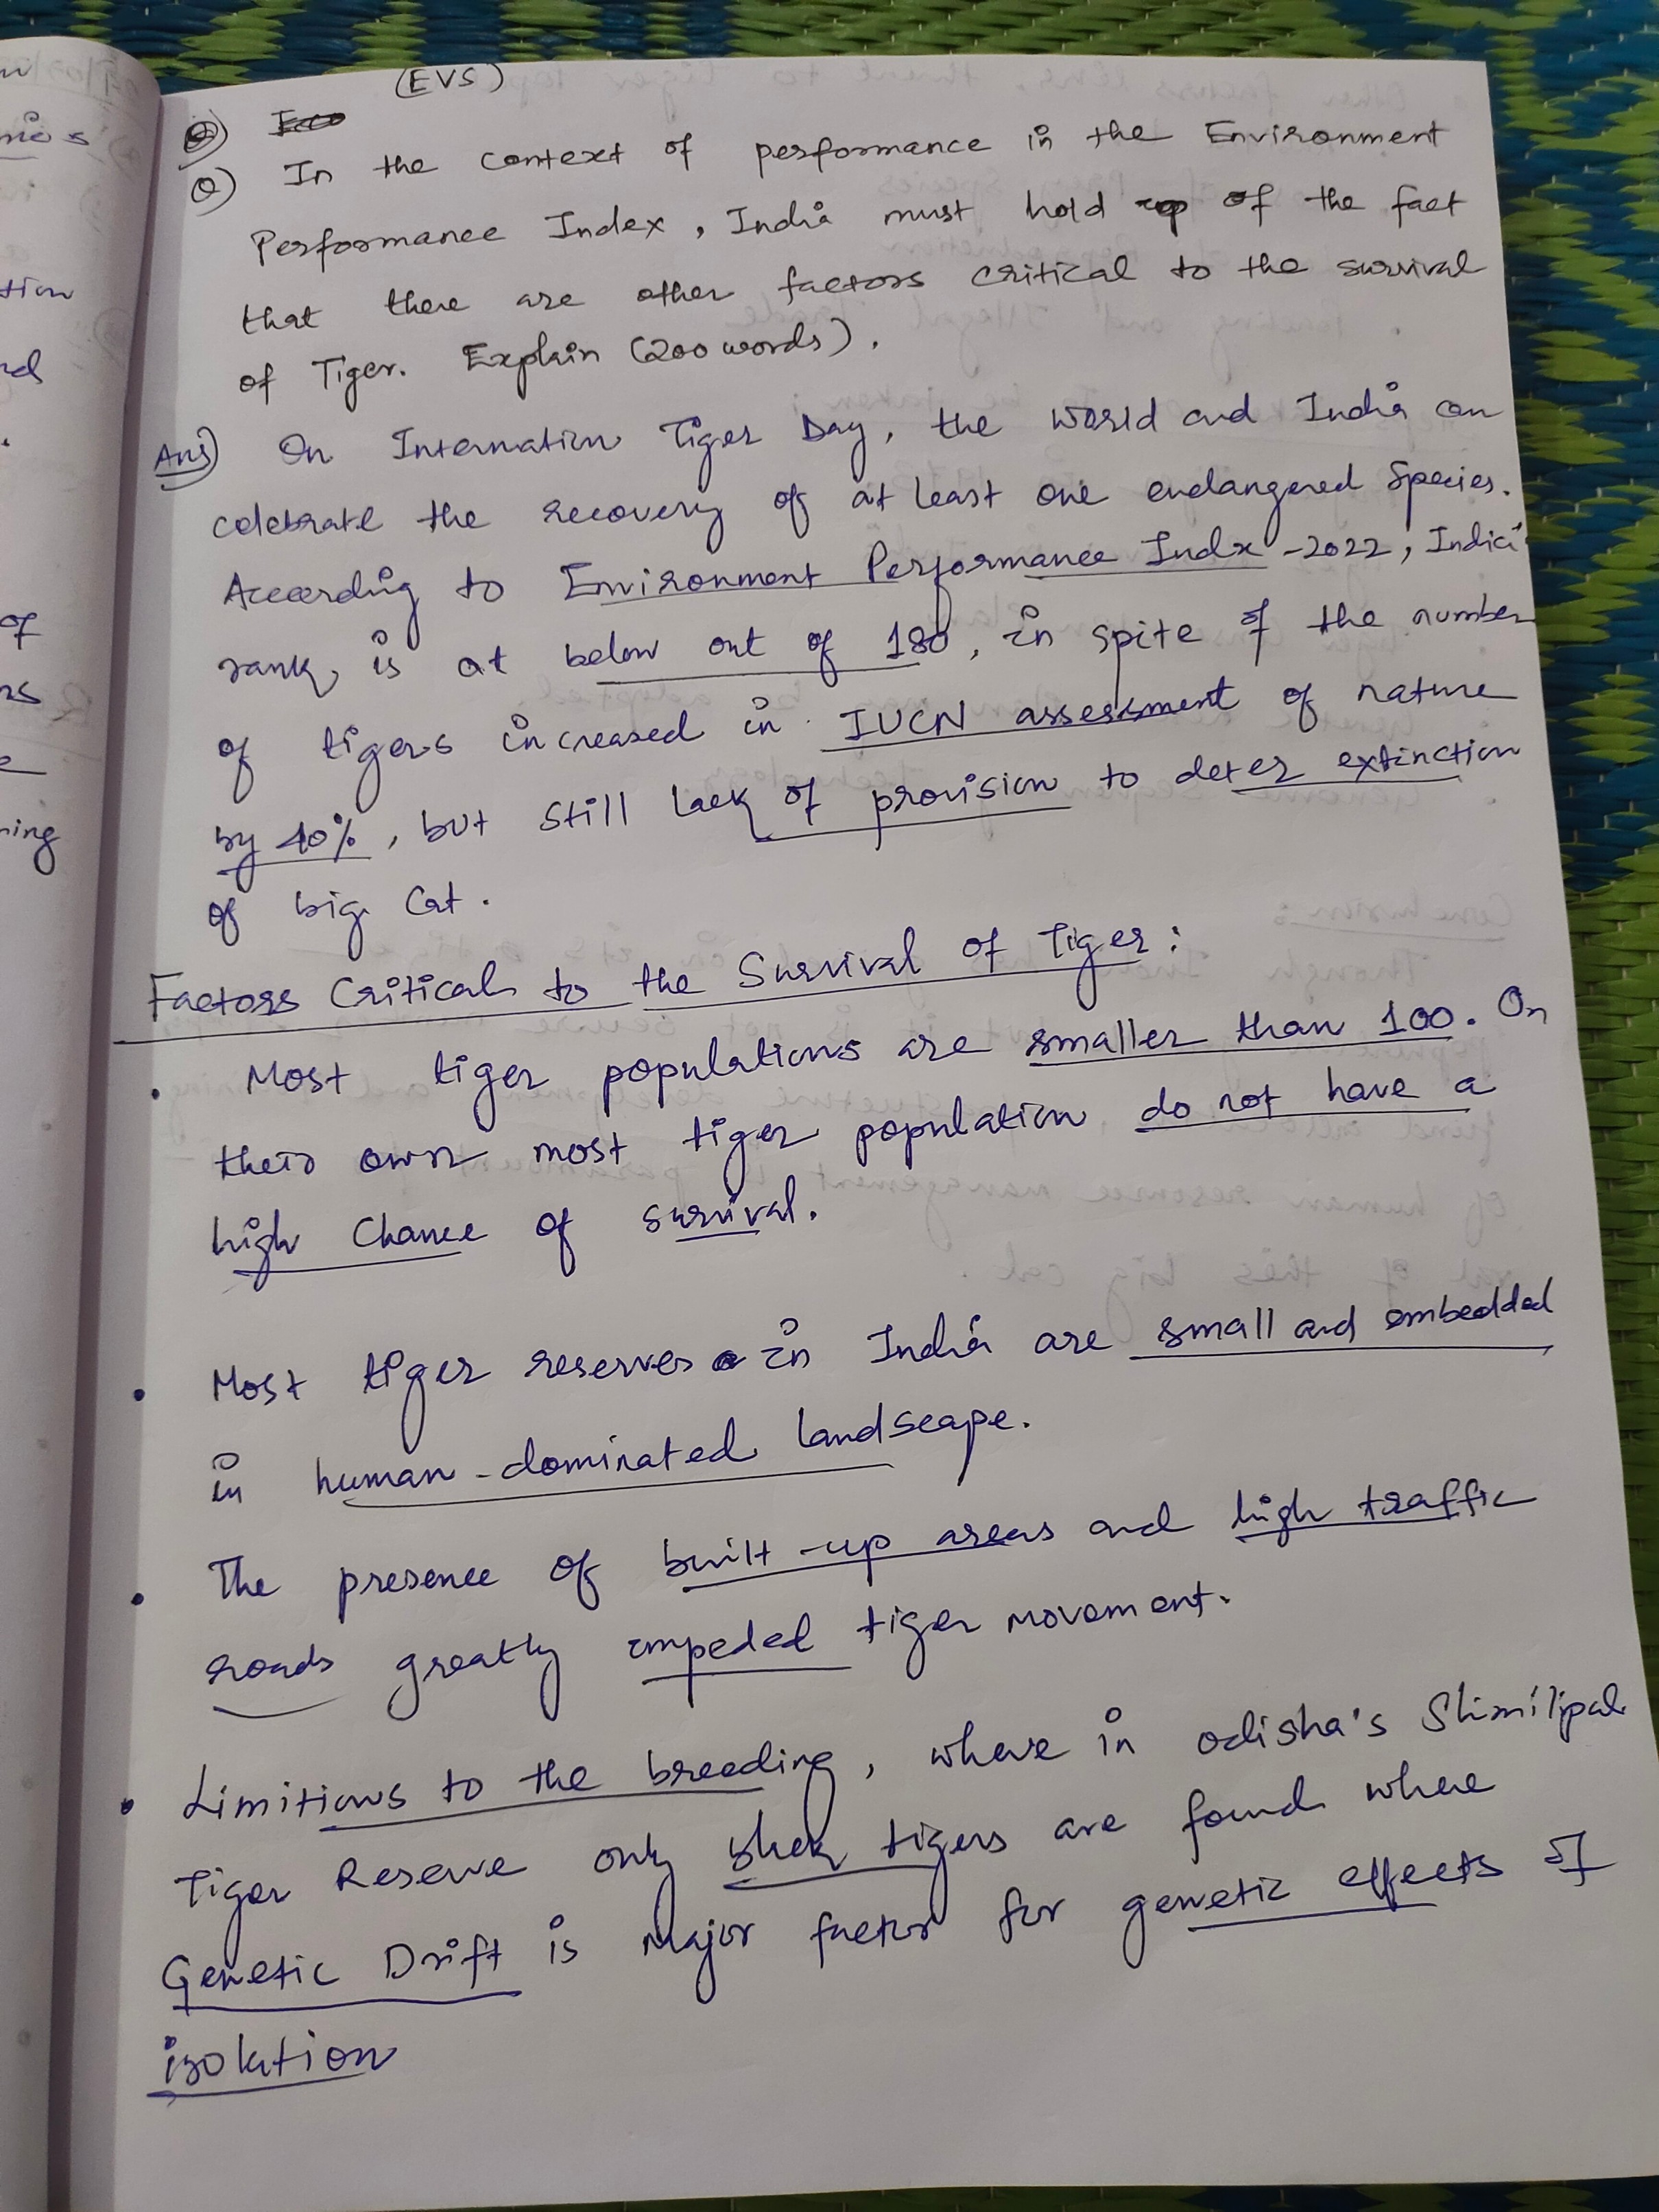 (EVS)
Q) In the context of performance in the Environment
Performance Index, India must hold up of the fact
that there are other factors critical to the survival
of Tiger. Explain (200 words).
Ans) On Internation Tiger Day, the world and India can
celebrate the recovery of at least one endangered species.
According to Environment Performance Index -2022, India
rank is at below out of 180, in spite of the number
of tigers increased in IUCN assessment of nature
by 40%, but still lack of provision to deter extinction
of big Cat.
Factors Critical to the Survival of Tiger:
• Most tiger populations are smaller than 100. On
their own most tiger population do not have a
high chance of survival.
• Most tiger reserves in India are small and embedded
in human-dominated landscape.
• The presence of built-up areas and high traffic
roads greatly impeded tiger movement.
• Limitions to the breeding, where in odisha's Shimilipal
Tiger Reserve only tigers are found where
Genetic Drift is major factor for genetic effects of
isolation
nies
tion
of
ning